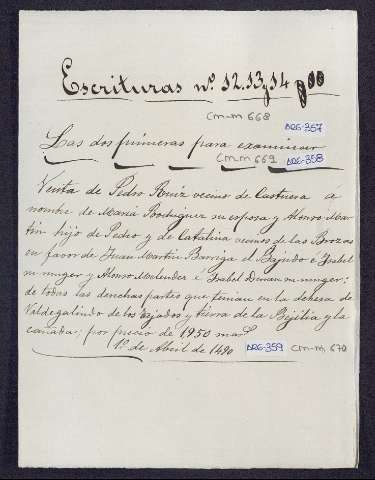 Escrituras nº. 12.13 y 14
CM-M 668
ARG-357
Las dos primeras para examinar
CM-M 669
ARG-358
Venta de Pedro Ruiz vecino de Castuera á
nombre de Maria Rodriguez su esposa y Alonso Mar-
tin hijo de Pedro y de Catalina vecinos de las Brozas
en favor de Juan Martin Barriga el Bajudo é Isabel
su muger y Alonso Melendez é Isabel Duran su muger:
de todas las derechas partes que tenian en la dehesa de
Valdegalindo de los ajados y tierra de la Bejilia y la
cañada; por precio de 1950 mar.s
1º. de Abril de 1490
ARG-359
CM-M, 670